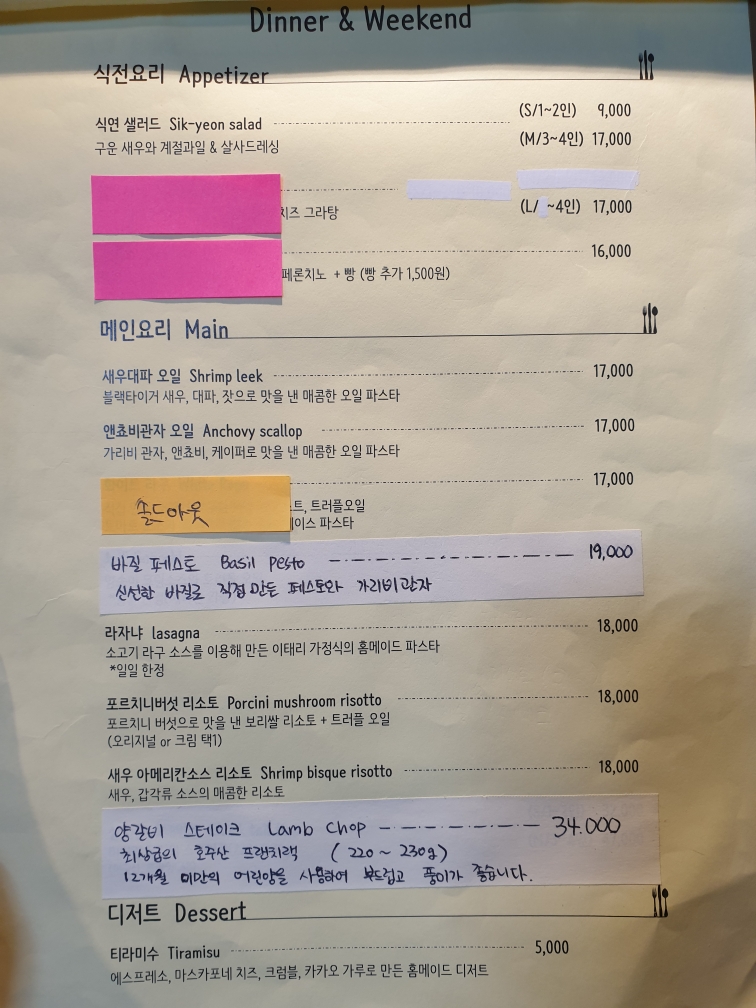 Dinner & Weekend
식전요리 Appetizer
식연 샐러드 Sik-yeon salad (S/1~2인) 9,000
구운 새우와 계절과일 & 살사드레싱 (M/3~4인) 17,000
치즈 그라탕 (L/ ~4인) 17,000
16,000
페론치노 + 빵 (빵 추가 1,500원)
메인요리 Main
새우대파 오일 Shrimp leek 17,000
블랙타이거 새우, 대파, 잣으로 맛을 낸 매콤한 오일 파스타
앤쵸비관자 오일 Anchovy scallop 17,000
가리비 관자, 앤쵸비, 케이퍼로 맛을 낸 매콤한 오일 파스타
17,000
솔드아웃 트, 트러플오일
이스 파스타
바질 페스토 Basil Pesto 19,000
신선한 바질로 직접 만든 페스토와 가리비 관자
라자냐 lasagna 18,000
소고기 라구 소스를 이용해 만든 이태리 가정식의 홈메이드 파스타
*일일 한정
포르치니버섯 리소토 Porcini mushroom risotto 18,000
포르치니 버섯으로 맛을 낸 보리쌀 리소토 + 트러플 오일
(오리지널 or 크림 택1)
새우 아메리칸소스 리소토 Shrimp bisque risotto 18,000
새우, 갑각류 소스의 매콤한 리소토
양갈비 스테이크 Lamb Chop 34.000
최상급의 호주산 프랜치랙 (220~230g)
12개월 미만의 어린양을 사용하여 부드럽고 풍미가 좋습니다.
디저트 Dessert
티라미수 Tiramisu 5,000
에스프레소, 마스카포네 치즈, 크럼블, 카카오 가루로 만든 홈메이드 디저트